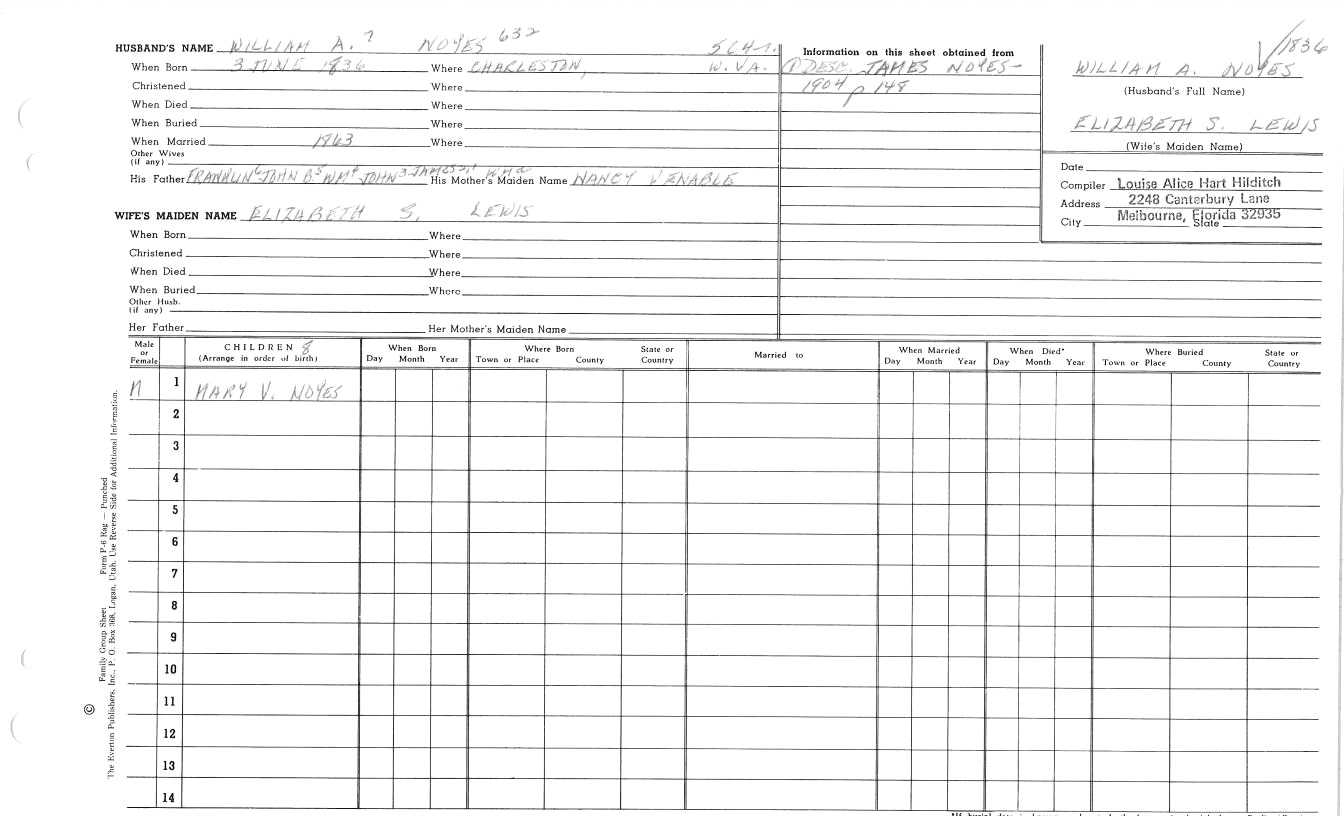 HUSBAND'S NAME WILLIAM A. 7 NOYES 632
When Born 3 JUNE 1836 Where CHARLESTON, W. VA.
Christened Where
When Died Where
When Buried Where
When Married 1863 Where
Other Wives
(if any)
His Father FRANKLIN 6 JOHN B 5 WM 4 JOHN 3 JAMES His Mother's Maiden Name NANCY VENABLE
WIFE'S MAIDEN NAME ELIZABETH S. LEWIS
When Born Where
Christened Where
When Died Where
When Buried Where
Other Husb.
(if any)
Her Father Her Mother's Maiden Name
Information on this sheet obtained from
DESC. JAMES NOYES-
1904 p 148
1836
WILLIAM A. NOYES
(Husband's Full Name)
ELIZABETH S. LEWIS
(Wife's Maiden Name)
Date
Compiler Louise Alice Hart Hilditch
Address 2248 Canterbury Lane
City Melbourne, Florida 32935 State
Male or Female CHILDREN 8 (Arrange in order of birth) When Born Day Month Year Where Born Town or Place County State or Country Married to When Married Day Month Year When Died* Day Month Year Where Buried Town or Place County State or Country
1 MARY V. NOYES
2
3
4
5
6
7
8
9
10
11
12
13
14
© Family Group Sheet Form P-6 Rag — Punched
The Everton Publishers, Inc., P. O. Box 368, Logan, Utah. Use Reverse Side for Additional Information.